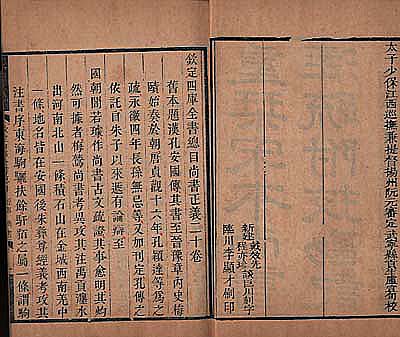 太子少保江西巡撫兼提督揚州阮元審定武寧縣貢生盧宣旬校
臨川李顯才刷印
欽定四庫全書總目尚書正義二十卷
舊本題漢孔安國傳其書至晉豫章内史梅
賾始奏於朝唐貞觀十六年孔穎達等為之
疏永徽四年長孫無忌等又加刊定孔傳之
依託自朱子以來遞有論辯至
國朝閻若璩作尚書古文疏證其事愈明其灼
然可據者梅鷟尚書考異攻其注禹貢瀍水
出河南北山一條積石山在金城西南羌中
一條地名皆在安國後朱彝尊經義考攻其
注書序東海駒驪扶餘馯貊之屬一條謂駒